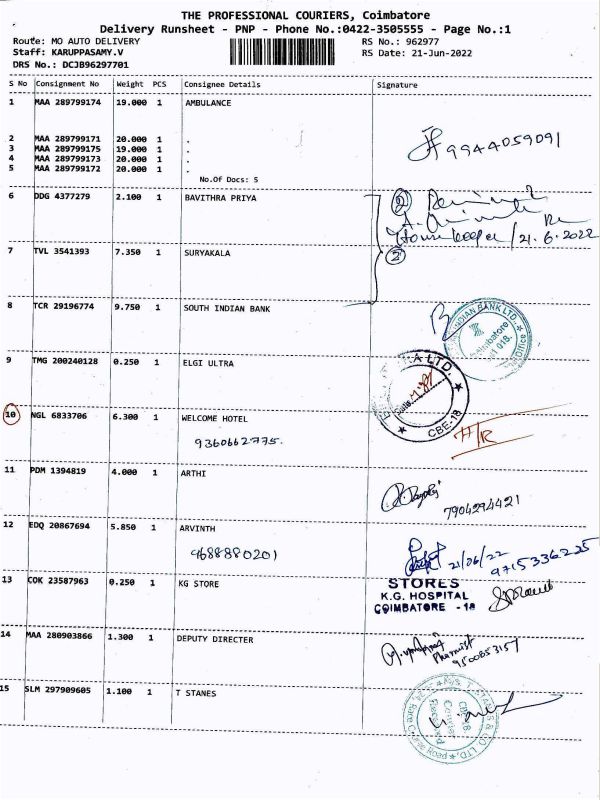 THE PROFESSIONAL COURIERS, Coimbatore
Delivery Runsheet - PNP - Phone No.:0422-3505555 - Page No.:1
Route: MO AUTO DELIVERY RS No.: 962977
Staff: KARUPPASAMY.V RS Date: 21-Jun-2022
DRS No.: DCJB96297701
S No Consignment No Weight PCS Consignee Details Signature
1 MAA 289799174 19.000 1 AMBULANCE
2 MAA 289799171 20.000 1 .
3 MAA 289799175 19.000 1 .
4 MAA 289799173 20.000 1 .
5 MAA 289799172 20.000 1 .
9944059091
No.Of Docs: 5
6 DDG 4377279 2.100 1 BAVITHRA PRIYA
House keeper / 21.6.2022
2
7 TVL 3541393 7.350 1 SURYAKALA
8 TCR 29196774 9.750 1 SOUTH INDIAN BANK
INDIAN BANK LTD.
Coimbatore
9 TMG 200240128 0.250 1 ELGI ULTRA
LTD.
Date
CBE-18
10 NGL 6833706 6.300 1 WELCOME HOTEL
9360662775.
11 PDM 1394819 4.000 1 ARTHI
7904294421
12 EDQ 20867694 5.850 1 ARVINTH
9688880201
21/06/22
9715336225
13 COK 23587963 0.250 1 KG STORE
STORES
K.G. HOSPITAL
COIMBATORE - 18
14 MAA 280903866 1.300 1 DEPUTY DIRECTER
Pharmist
9500853157
15 SLM 297909605 1.100 1 T STANES
CBE-18